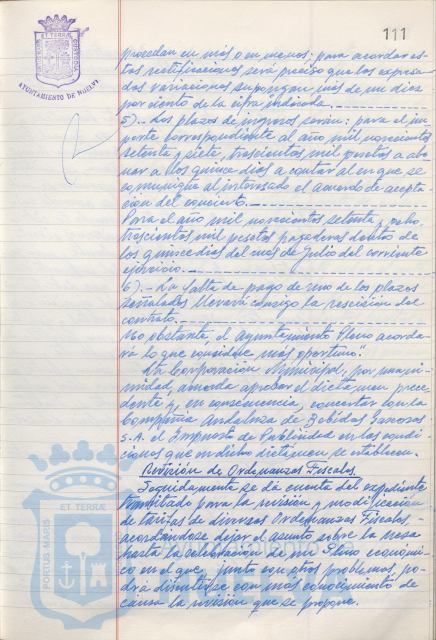 111
ET TERRÆ CUSTODIA
PORTUS MARIS
AYUNTAMIENTO DE HUELVA
procedan en más o en menos; para acordar es-
tas rectificaciones será preciso que las expresa-
das variaciones supongan más de un diez
por ciento de la cifra indicada.
5).- Los plazos de ingresos serán: para el im-
porte correspondiente al año mil novecientos
setenta y siete, trescientas mil pesetas a abo-
nar a los quince días a contar al en que se
comunique al interesado el acuerdo de acepta-
ción del concierto.
Para el año mil novecientos setenta y ocho,
trescientas mil pesetas pagaderas dentro de
los quince días del mes de Julio del corriente
ejercicio.
6).- La falta de pago de uno de los plazos
señalados llevará consigo la rescisión del
contrato.
No obstante el Ayuntamiento Pleno acorda-
rá lo que considere más oportuno".
La Corporación Municipal, por unani-
midad, acuerda aprobar el dictamen prece-
dente y, en consecuencia, concertar con la
Compañía Andaluza de Bebidas Gaseosas
S.A. el Impuesto de Publicidad en las condi-
ciones que en dicho dictamen se establecen.
Revisión de Ordenanzas Fiscales.
Seguidamente se dá cuenta del expediente
tramitado para la revisión y modificación
de tarifas de diversas Ordenanzas Fiscales,
acordándose dejar el asunto sobre la mesa
hasta la celebración de un Pleno económi-
co en el que, junto con otros problemas, po-
drá discutirse con más conocimiento de
causa la revisión que se propone.
ET TERRÆ
PORTUS MARIS